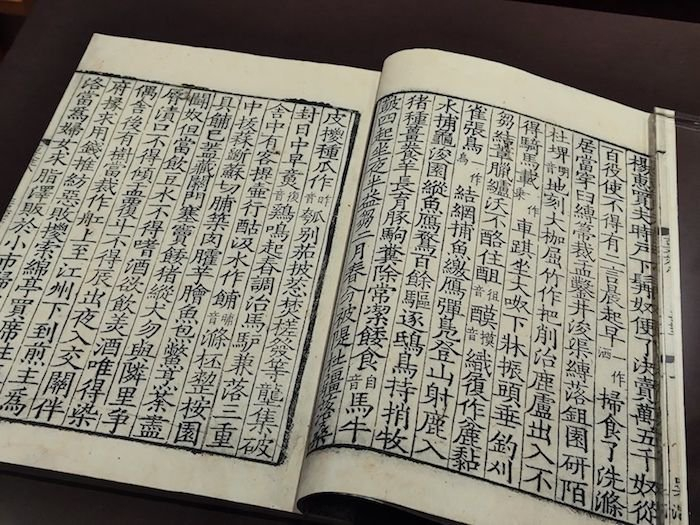 楊惠買夫時戶下髯奴便了決賣萬五千奴從
百役使不得有二言晨起早一作洒掃食了洗滌
居當穿臼縛箒裁盂鑿井浚渠縛落鉏園研陌
杜埤音明地刻大枷屈竹作杷削治鹿盧出入不
得騎馬載一作乘車踑坐大呶下牀振頭垂釣刈
芻結葦臘纑沃不酪住䣯音俎醭音摸織履作麄黏
雀張鳥一作烏結網捕魚繳鴈彈鳧登山射鹿入
水捕龜浚園縱魚鴈鶩百餘驅逐鴟鳥持捎牧
猪種薑養羊長育豚駒糞除常潔餧食音自馬牛
鼓四起坐夜半益芻二月春分被隄杜壃落桑
皮椶種瓜作瓠別茄披葱焚槎發芋壟集破
封日中早㸐鷄鳴起舂調治馬驢兼落三重
舍中有客提壺行酤汲水作餔音晡滌杯整按園
中拔蒜斷蘇切脯築肉臛芋膾魚包鱉烹茶盡
具餔已蓋藏關門塞竇餧猪縱犬勿與隣里爭
鬪奴但當飲豆水不得嗜酒欲飲美酒唯得染
脣漬口不得傾盂覆斗不得晨出夜入交關伴
偶舍後有樹當裁作舡上至江州下到前主為
府掾求用錢推紡惡敗椶索綿亭買席往
洛當為婦女求脂澤販於小市歸